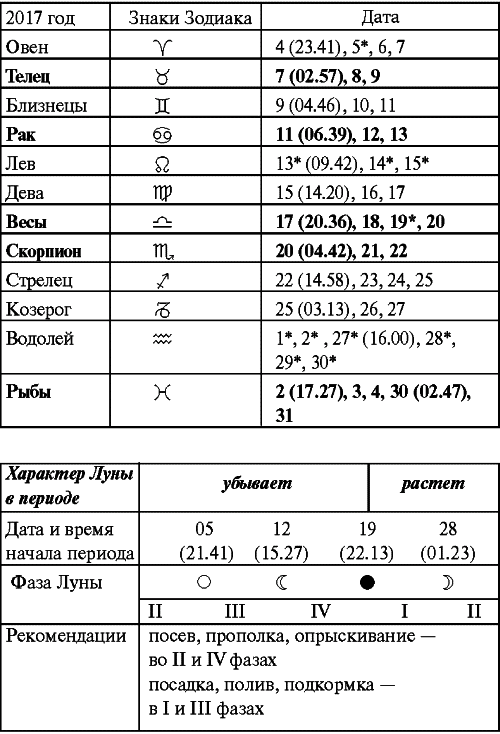 2017 год Знаки Зодиака Дата
Овен ♈ 4 (23.41), 5*, 6, 7
Телец ♉ 7 (02.57), 8, 9
Близнецы ♊ 9 (04.46), 10, 11
Рак ♋ 11 (06.39), 12, 13
Лев ♌ 13* (09.42), 14*, 15*
Дева ♍ 15 (14.20), 16, 17
Весы ♎ 17 (20.36), 18, 19*, 20
Скорпион ♏ 20 (04.42), 21, 22
Стрелец ♐ 22 (14.58), 23, 24, 25
Козерог ♑ 25 (03.13), 26, 27
Водолей ♒ 1*, 2* , 27* (16.00), 28*,
29*, 30*
Рыбы ♓ 2 (17.27), 3, 4, 30 (02.47),
31
Характер Луны
в периоде
убывает растет
Дата и время 05 12 19 28
начала периода (21.41) (15.27) (22.13) (01.23)
Фаза Луны ○ ☾ ● ☽
II III IV I II
Рекомендации посев, прополка, опрыскивание —
во II и IV фазах
посадка, полив, подкормка —
в I и III фазах